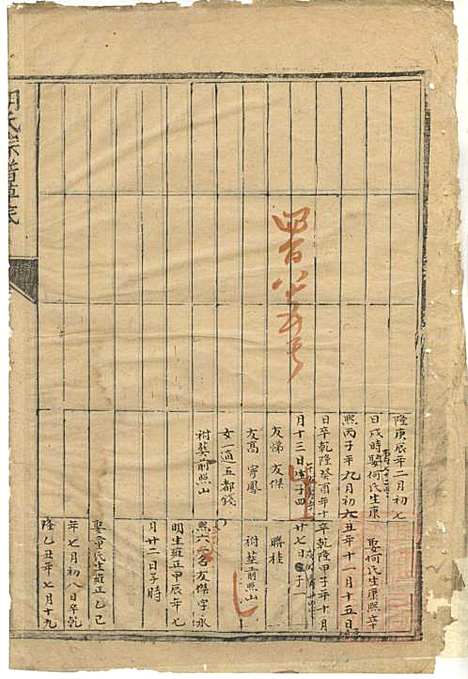 隆庚辰年二月初七
日戌時娶何氏生康
熙丙子年九月初六
日卒乾隆癸酉年十
月十三日 子四
友悌 友傑
友高 寧鳳
女一適五都錢
祔葬前照山
娶何氏生康熙六十
五年十一月十五日
卒乾隆甲子年十月
廿七日 子一
聘桂
祔葬前照山
熙六 名友傑字永
明生雍正甲辰年七
月廿二日子時
娶章氏生雍正乙巳
年七月初八日卒乾
隆乙丑年七月十九
四百八十五号
氏宗譜